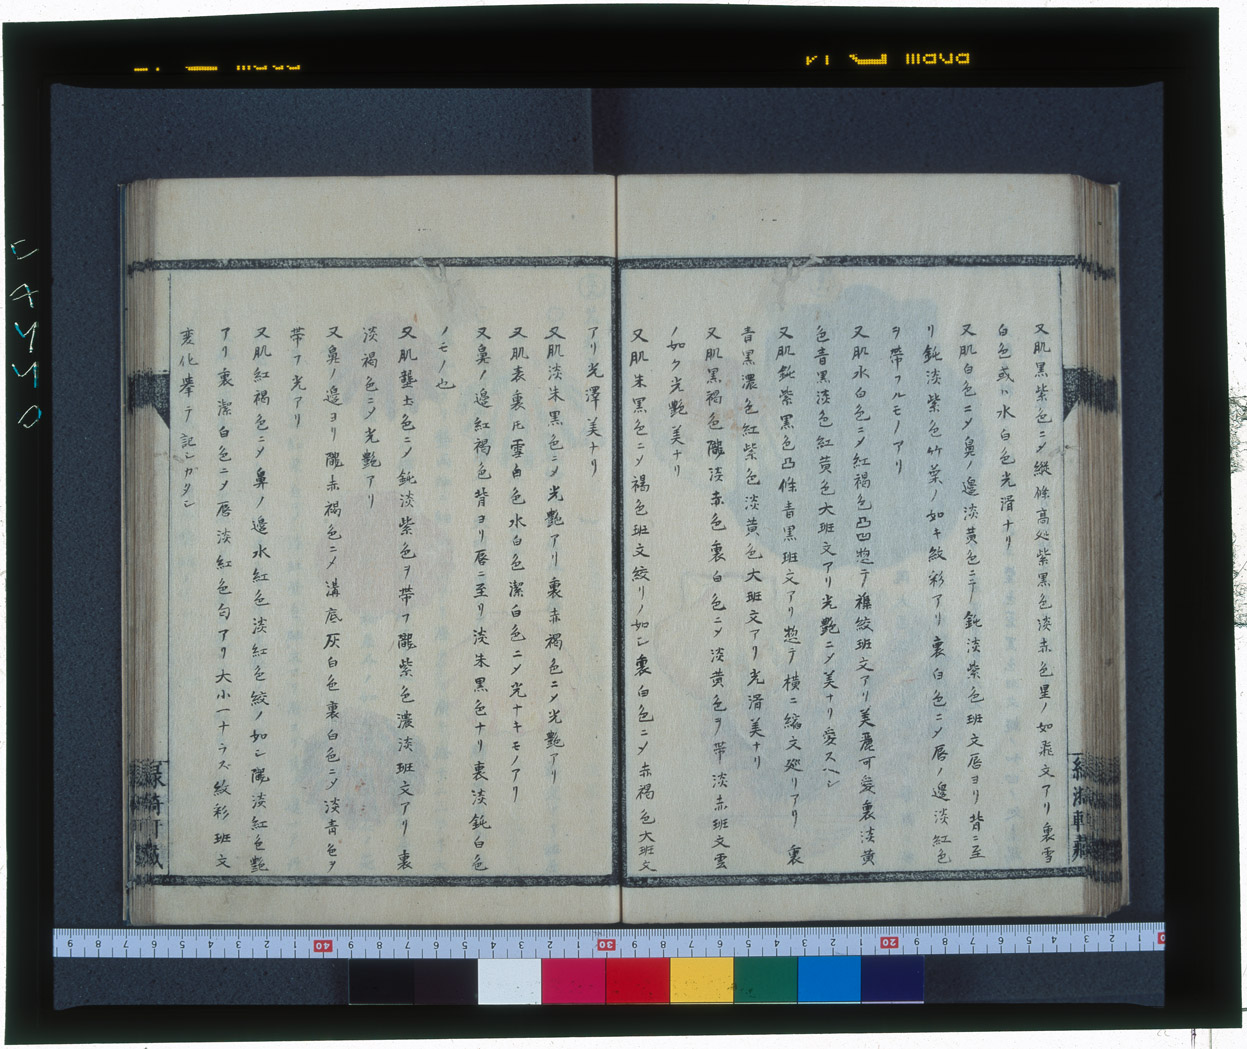 又肌黒紫色ニメ縦條高処紫黒色淡赤色星ノ如飛文アリ裏雪
白色或ハ水白色光滑ナリ
又肌白色ニメ鼻ノ邉淡黄色ニテ鈍淡紫色班文唇ヨリ背ニ至
リ鈍淡紫色竹葉ノ如キ紋彩アリ裏白色ニメ唇ノ邉淡紅色
ヲ帶フルモノアリ
又肌水白色ニメ紅褐色凸凹惣テ襍紋班文アリ美麗可愛裏淡黄
色青黒淡色紅黄色大班文アリ光艶ニメ美ナリ愛スヘシ
又肌鈍紫黒色凸條青黒班文アリ惣テ横ニ縮文處リアリ裏
青黒濃色紅紫色淡黄色大班文アリ光滑美ナリ
又肌黒褐色朧淡赤色裏白色ニメ淡黄色ヲ帶淡赤班文雲
ノ如ク光艶美ナリ
又肌朱黒色ニメ褐色班文絞リノ如シ裏白色ニメ赤褐色大班文
アリ光澤美ナリ
又肌淡朱黒色ニメ光艶アリ裏赤褐色ニメ光艶アリ
又肌表裏氏雪白色水白色潔白色ニメ光ナキモノアリ
又鼻ノ邉紅褐色背ヨリ唇ニ至リ淡朱黒色ナリ裏淡鈍白色
ノモノ也
又肌藍土色ニメ鈍淡紫色ヲ帶フ朧紫色濃淡班文アリ裏
淡褐色ニメ光艶アリ
又鼻ノ邉ヨリ朧赤褐色ニメ溝底灰白色裏白色ニメ淡青色ヲ
帶フ光アリ
又肌紅褐色ニメ鼻ノ邉水紅色淡紅色絞ノ如シ朧淡紅色艶
アリ裏潔白色ニメ唇淡紅色匂アリ大小一ナラズ紋彩班文
変化挙テ記シガタシ